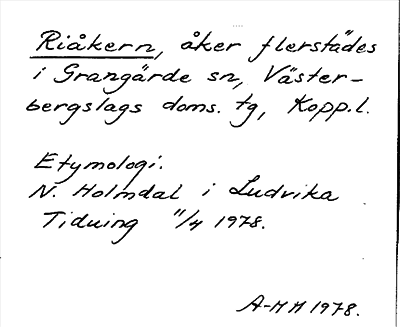 Riåkern, åker flerstädes
i Grangärde sn, Väster-
bergslags doms. tg, Kopp.l.
Etymologi.
N. Holmdal i Ludvika
Tidning 11/4 1978.
A-MM 1978.